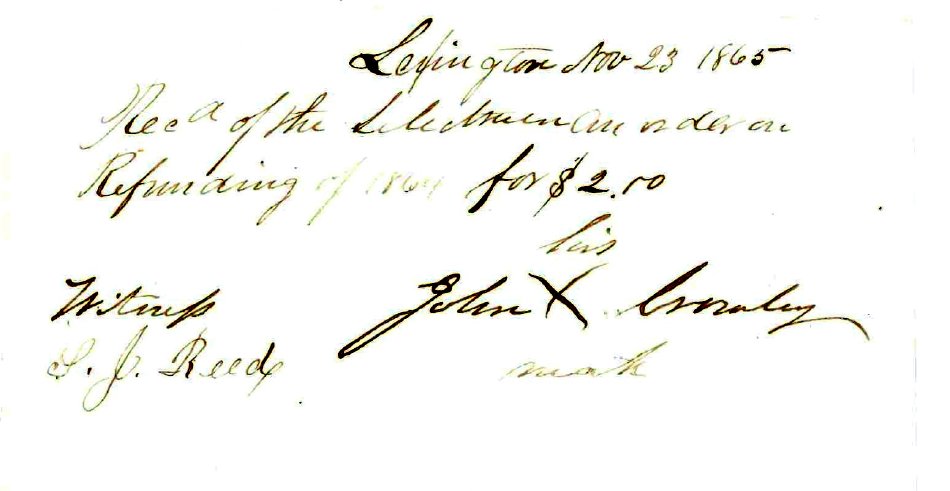 Lexington Nov 23 1865
Recd of the Selectmen an order on
Refunding of 1864 for $2.00
his
John X Crowley
mark
Witness
S. J. Reed